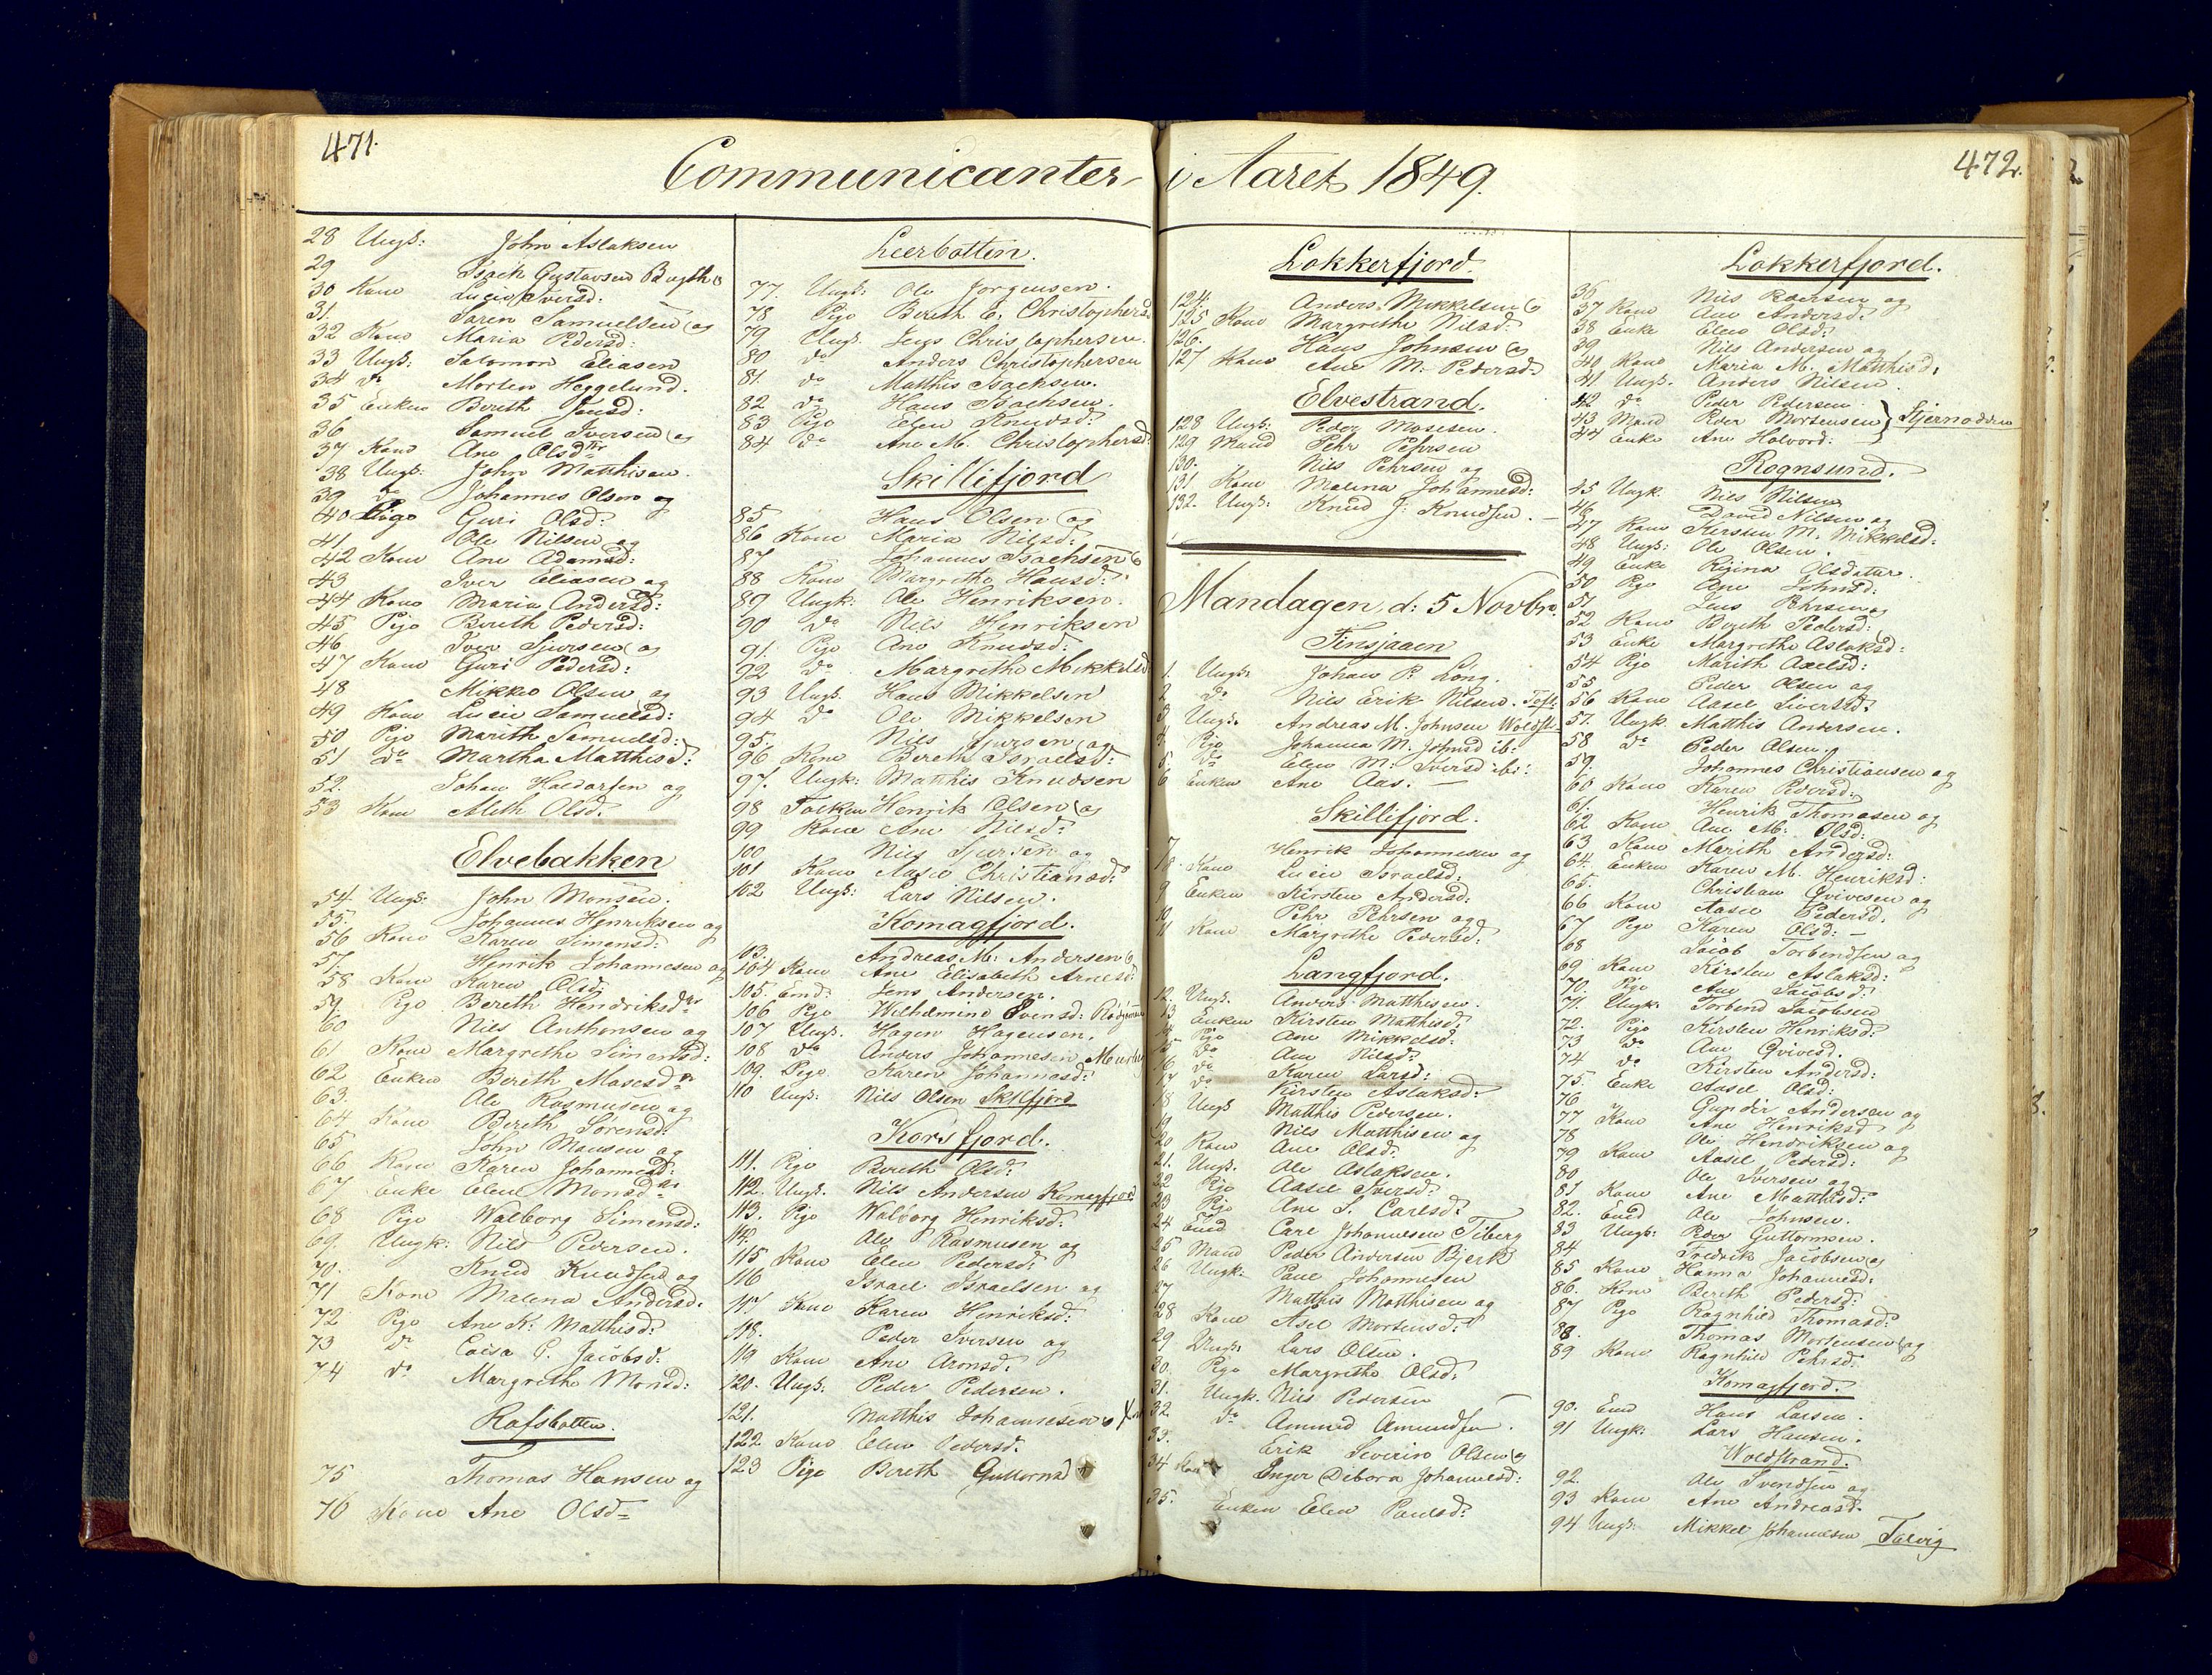 471.
Communicanter
28 Ungk: John Aslaksen
29 Isach Gustavsen Bugth
30 Kone Lucie Iversd:
31. Søren Samuelsen og
32 Kone Maria Pedersd:
33 Ungk: Salomon Eliasen
34 do Morten Heggelund.
35 Enken Bereth Jensd:
36 Samuel Iversen og
37 Kone Ane Olsdtr
38 Ungk: John Matthisen.
39 do Johannes Olsen og
40 Pige Guri Olsd:
41 Ole Nilsen og
42 Kone Ane Adamsd:
43 Iver Eliasen og
44 Kone Maria Andersd:
45 Pige Bereth Pedersd:
46 Iver Sjursen og
47 Kone Guri Pedersd:
48 Mikkel Olsen og
49 Kone Lucie Samuelsd:
50 Pige Marith Samuelsd:
51 do Martha Matthisd:
52. Johan Haldorsen og
53 Kone Aleth Olsd.
Elvebakken
54 Ungk: John Monsen.
55. Johannes Henriksen og
56 Kone Karen Simensd:
57. Henrik Johannesen og
58 Kone Karen Olsd:
59. Pige Bereth Hendriksdr
60 Nils Anthonsen og
61 Kone Margrethe Simensd:
62 Enken Bereth Mosesdr
63. Ole Rasmusen og
64 Kone Bereth Sørensd:
65 John Monsen og
66 Kone Karen Johannesd:
67 Enke Elen Monsdr
68 Pige Walborg Simensd:
69. Ungk: Nils Pedersen.
70. Knud Knudsen og
71 Kone Malena Andersd.
72 Pige Ane K: Matthisd:
73 do Caisa C. Jacobsd:
74 do Margrethe Monsd:
Rafsbotten.
75 Thomas Hansen og
76 Kone Ane Olsd
Leerbotten.
77. Ungk: Ole Jørgensen.
78 Pige Bereth E. Christophersd
79. Ungk. Jens Christophersen.
80 do Anders Christophersen
81. do Matthis Isachsen.
82 do Hans Isachsen.
83 Pige Elen Knudsd:
84 do Ane M. Christophersd:
Skillifjord
85 Hans Olsen og
86 Kone Maria Nilsd:
87 Johannes Isachsen
88 Kone Margrethe Hansd:
89 Ungk: Ole Henriksen.
90 do Nils Henriksen
91. Pige Ane Knudsd:
92 do Margrethe Mikkelsd
93 Ungk. Hans Mikkelsen
94 do Ole Mikkelsen
95. Nils Sjursen og
96 Kone Bereth Israelsd:
97. Ungk: Matthis Knudsen
98 Tolken Henrik Olsen og
99 Kone Ane Nilsd:
100 Nils Sjursen og
101 Kone Aasel Christiansd:
102 Ungk: Lars Nilsen.
Komagfjord.
103. Andreas M: Andersen
104 Kone Ane Elisabeth Arnesd:
105. Emd: Jens Andersen.
106 Pige Wilhelmine Svensd:
107 Ungk. Hagen Hagensen.
108 do Anders Johannesen
109. Pige Karen Johannesd:
110 Ungk: Nils Olsen Skilfjord
Korsfjord.
111. Pige Bereth Olsd:
112. Ungk. Nils Andersen Komagfjord
113. Pige Walborg Henriksd:
114. Ole Rasmusen og
115 Kone Elen Pedersd:
116 Israel Israelsen og
117. Kone Karen Henriksd:
118. Peder Iversen og
119 Kone Ane Aronsd:
120. Ungk: Peder Pedersen.
121. Matthis Johannesen
122 Kone Elen Pedersd.
123 Pige Bereth Guttormsd
472.
i Aaret 1849.
Lokkerfjord.
124. Anders Mikkelsen
125 Kone Margrethe Nilsd:
126. Hans Johnsen og
127 Kone Ane M. Pedersd:
Elvestrand.
128 Ungk: Peder Mosesen.
129 Mand Pehr Pehrsen
130. Nils Pehrsen og
131. Kone Malena Johannesd:
132. Ungk: Knud J: Knudsen.
Mandagen, d: 5 Novbr
Finsjaaen
1. Ungk: Johan P. Long.
2 do Nils Erik Nilsen.
3 Ungk. Andreas M. Johnsen
4. Pige Johanna M. Johnsd ib:
5. do Elen M: Iversd ib:
6 Enken Ane Aas.
Skillifjord.
7. Henrik Johannesen og
8. Kone Lucie Israelsd:
9 Enken Kirsten Andersd:
10. Pehr Pehrsen og
11 Kone Margrethe Pedersd:
Langfjord.
12. Ungk. Anders Matthisen.
13 Enken Kirsten Matthisd:
14 Pige Ane Mikkelsd:
15 do Ane Nilsd:
16 do Karen Larsd:
17 do Kirsten Aslaksd:
18 Ungk Matthis Pedersen.
19. Nils Matthisen og
20 Kone Ane Olsd:
21. Ungk. Ole Aslaksen.
22 Pige Aasel Iversd:
23 Pige Ane S. Carlsd:
24 Emd Carl Johannesen Tiberg
25 Mand Peder Andersen Bjerk
26 Ungk: Paul Johannesen
27 Matthis Matthisen og
28 Kone Asel Mortensd:
29. Ungk: Lars Olsen.
30. Pige Margrethe Olsd:
31. Ungk. Nils Pedersen
32 do Ammund Amundsen.
33. Erik Severin Olsen og
34 Kone Inger Debora Johannesd:
35. Enken Elen Paulsd:
Lokkerfjord.
36 Nils Pedersen og
37 Kone Ane Andersd:
38 Enke Elen Olsd:
39 Nils Andersen og
40 Kone Maria M. Matthisd:
41. Ungk. Anders Nilsen.
42 do Peder Pedersen.
43 Mand Peder Mortensen } Stjernodden
44 Enke Ane Halvord:
Rognsund.
45 Ungk. Nils Nilsen
46 David Nilsen og
47 Kone Kirsten M. Mikkelsd:
48 Ungk: Ole Olsen.
49 Enke Regina Olsdatter.
50 Pige Ane Johnsd:
51 Jens Pehrsen og
52 Kone Bereth Pedersd:
53 Enke Margrethe Aslaksd:
54 Pige Marith Axelsd:
55 Peder Olsen og
56 Kone Aasel Sivertsd:
57. Ungk. Matthis Andersen.
58 do Peder Olsen.
59. Johannes Christiansen og
60 Kone Karen Pedersd:
61. Henrik Thomasen og
62 Kone Ane M: Olsd:
63 Kone Marith Andersd:
64. Enken Karen M. Henriksd:
65. Christian Qvivesen og
66 Kone Aasel Pedersd.
67 Pige Karen Olsd:
68 Jacob Torbendsen og
69 Kone Kirsten Aslaksd:
70. Pige Ane Jacobsd:
71. Ungk: Torbend Jacobsen
72. Pige Kirsten Henriksd:
73 do Ane Qvivesd.
74 do Kirsten Andersd:
75. Enke Aasel Olsd:
76 Gunder Andersen og
77 Kone Ane Henriksd
78 Ole Hendriksen og
79 Kone Aasel Pedersd:
80 Ole Iversen og
81 Kone Ane Matthisd:
82. Emd Ole Johnsen.
83 Ungk: Peder Guttormsen.
84 Fredrik Jacobsen og
85 Kone Hanna Johannesd:
86. Kone Bereth Pedersd:
87 Pige Ragnhild Thomasd:
88. Thomas Mortensen og
89 Kone Ragnhild Pehrsd:
Komagfjord.
90. Emd Hans Larsen.
91 Ungk: Lars Hansen.
Woldstrand.
92. Ole Svendsen og
93 Kone Ane Andreasd.
94 Ungk: Mikkel Johannesen Talvig